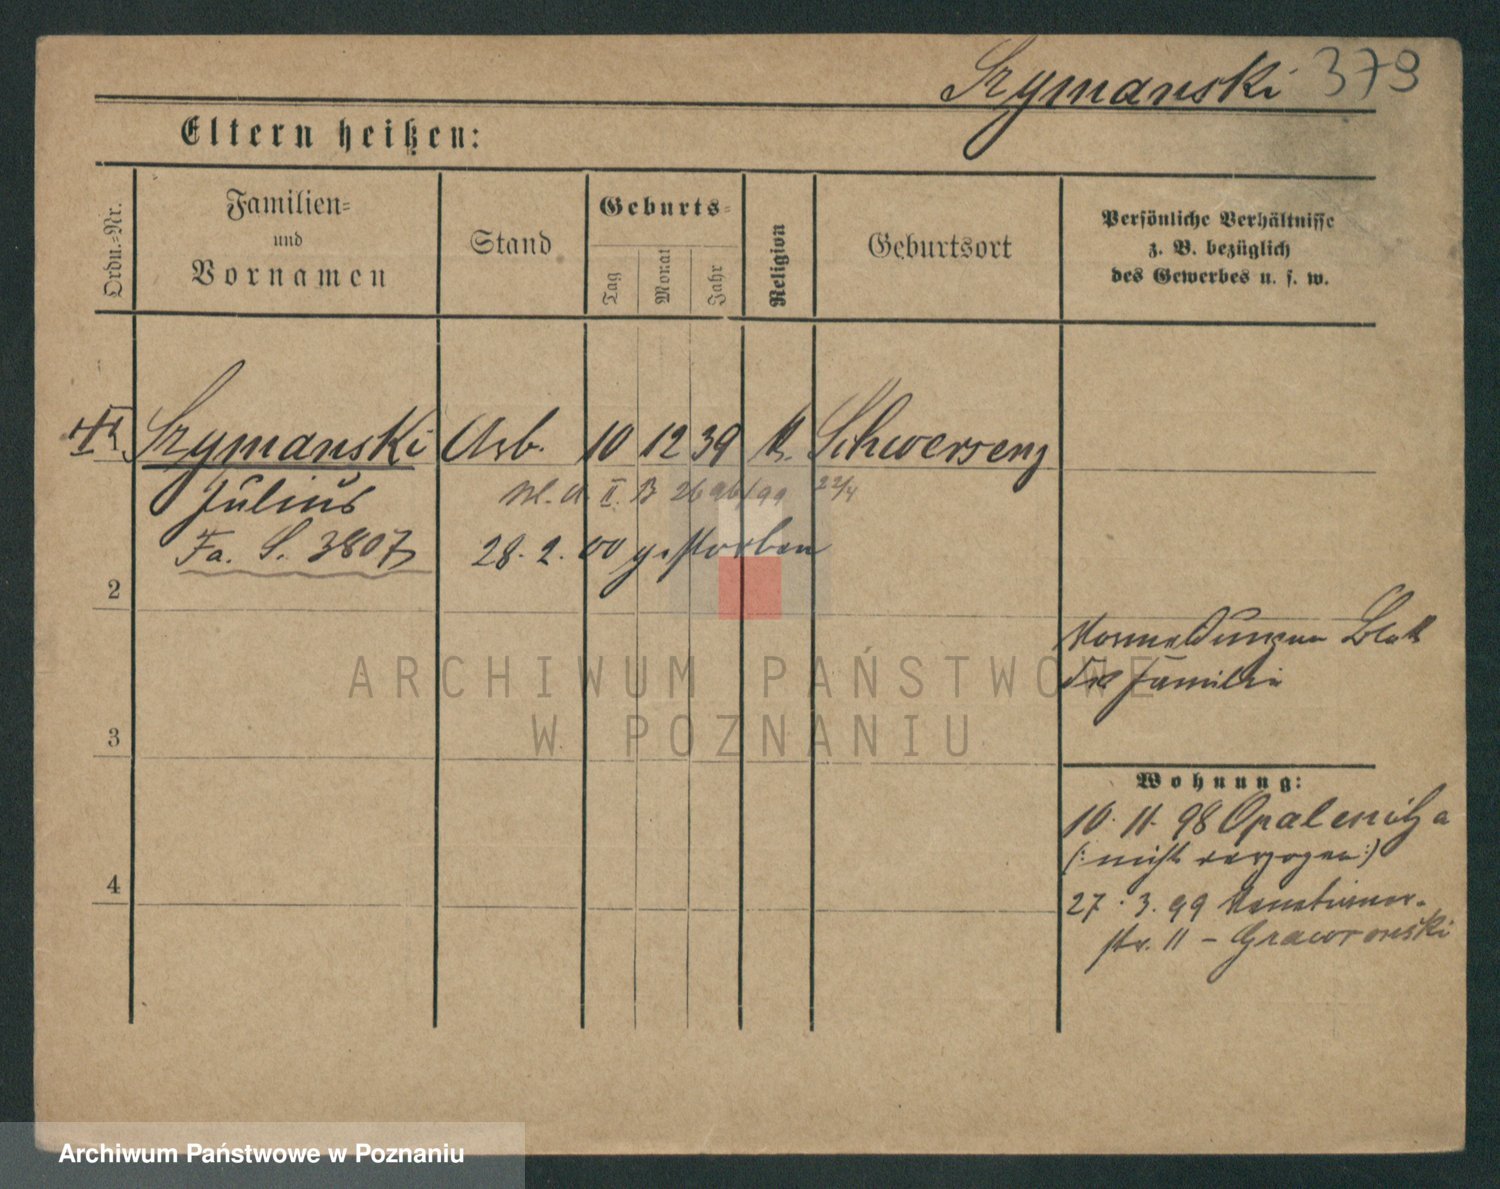 Szymanski 379
Eltern heißen:
Ordn.-Nr.
Familien-
und
Vornamen
Stand
Geburts-
Tag
Monat
Jahr
Religion
Geburtsort
Persönliche Verhältnisse
z. B. bezüglich
des Gewerbes u. s. w.
Szymanski Arb. 10 12 39 k. Schwersenz
Julius
II. B 2696/99 22/4
Fa. S. 3807
28. 2. 00 gestorben
2
Vormeldungen Blatt
der Familie
3
Wohnung:
10. 11. 98 Opalenitza
(: nicht verzogen :)
4
27. 3. 99 Venetianer-
str. 11 - Graworonski
ARCHIWUM PAŃSTWOWE
W POZNANIU
Archiwum Państwowe w Poznaniu